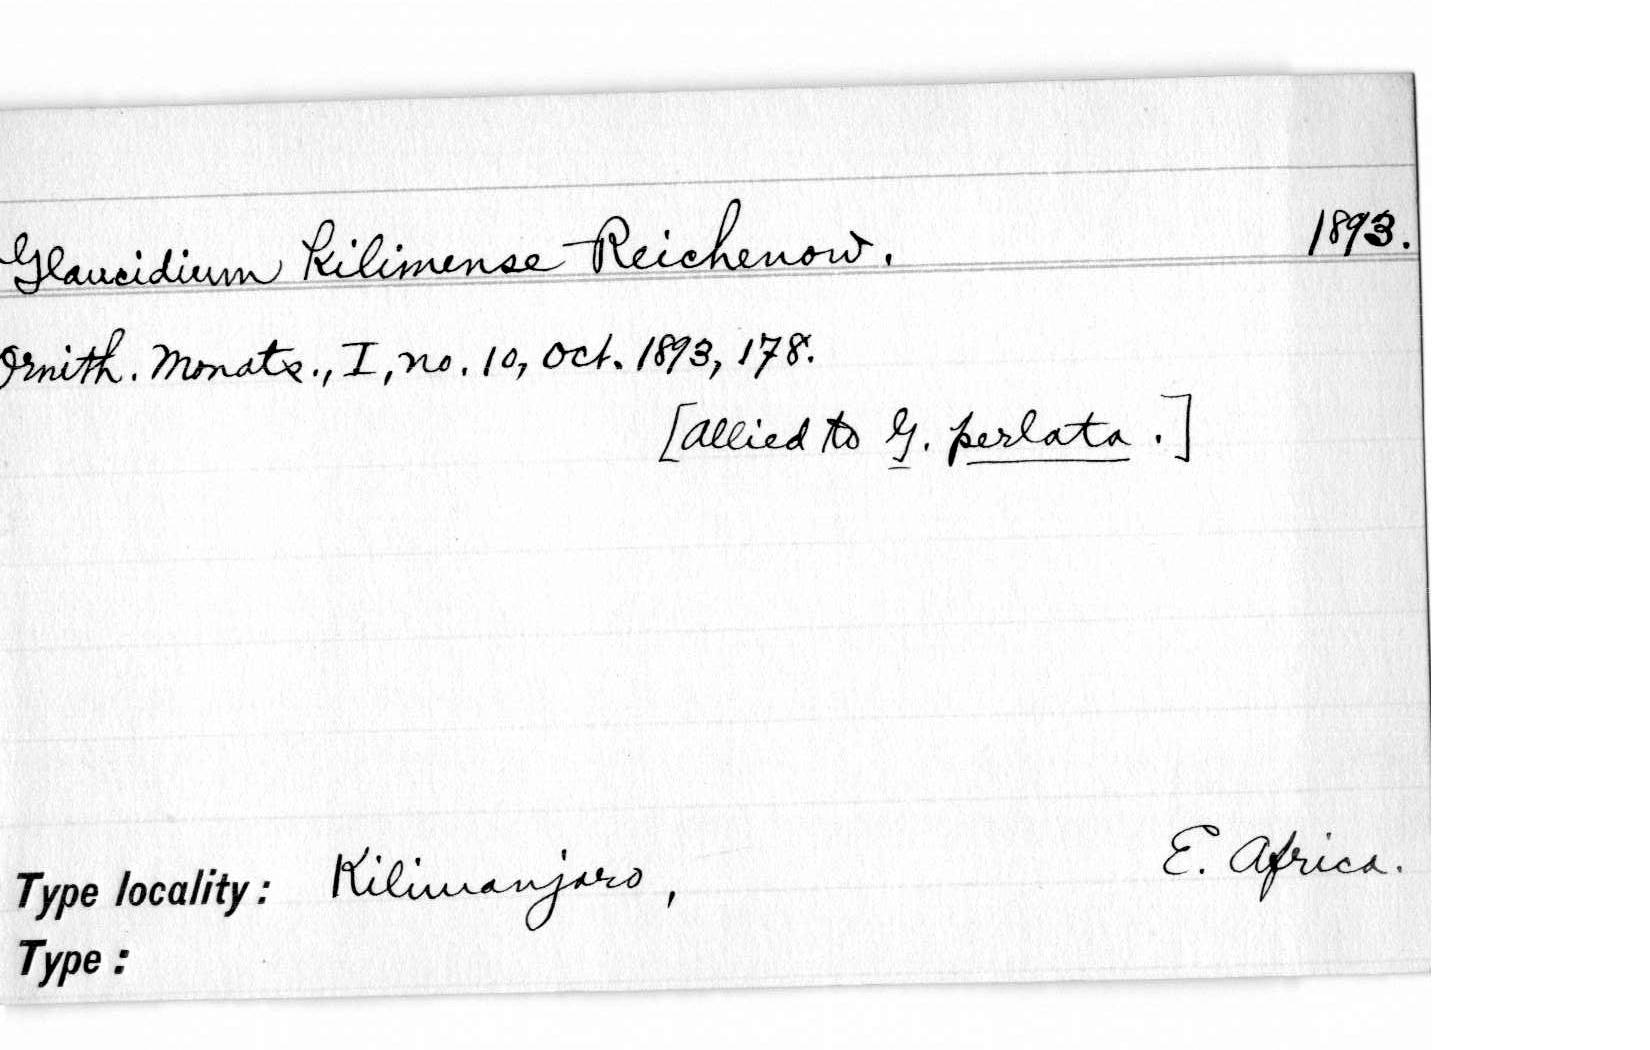 Glaucidium kilimense Reichenow. 1893.
Ornith. Monats., I, no. 10, Oct. 1893, 178.
[Allied to G. perlata.]
Type locality: Kilimanjaro, E. Africa.
Type: